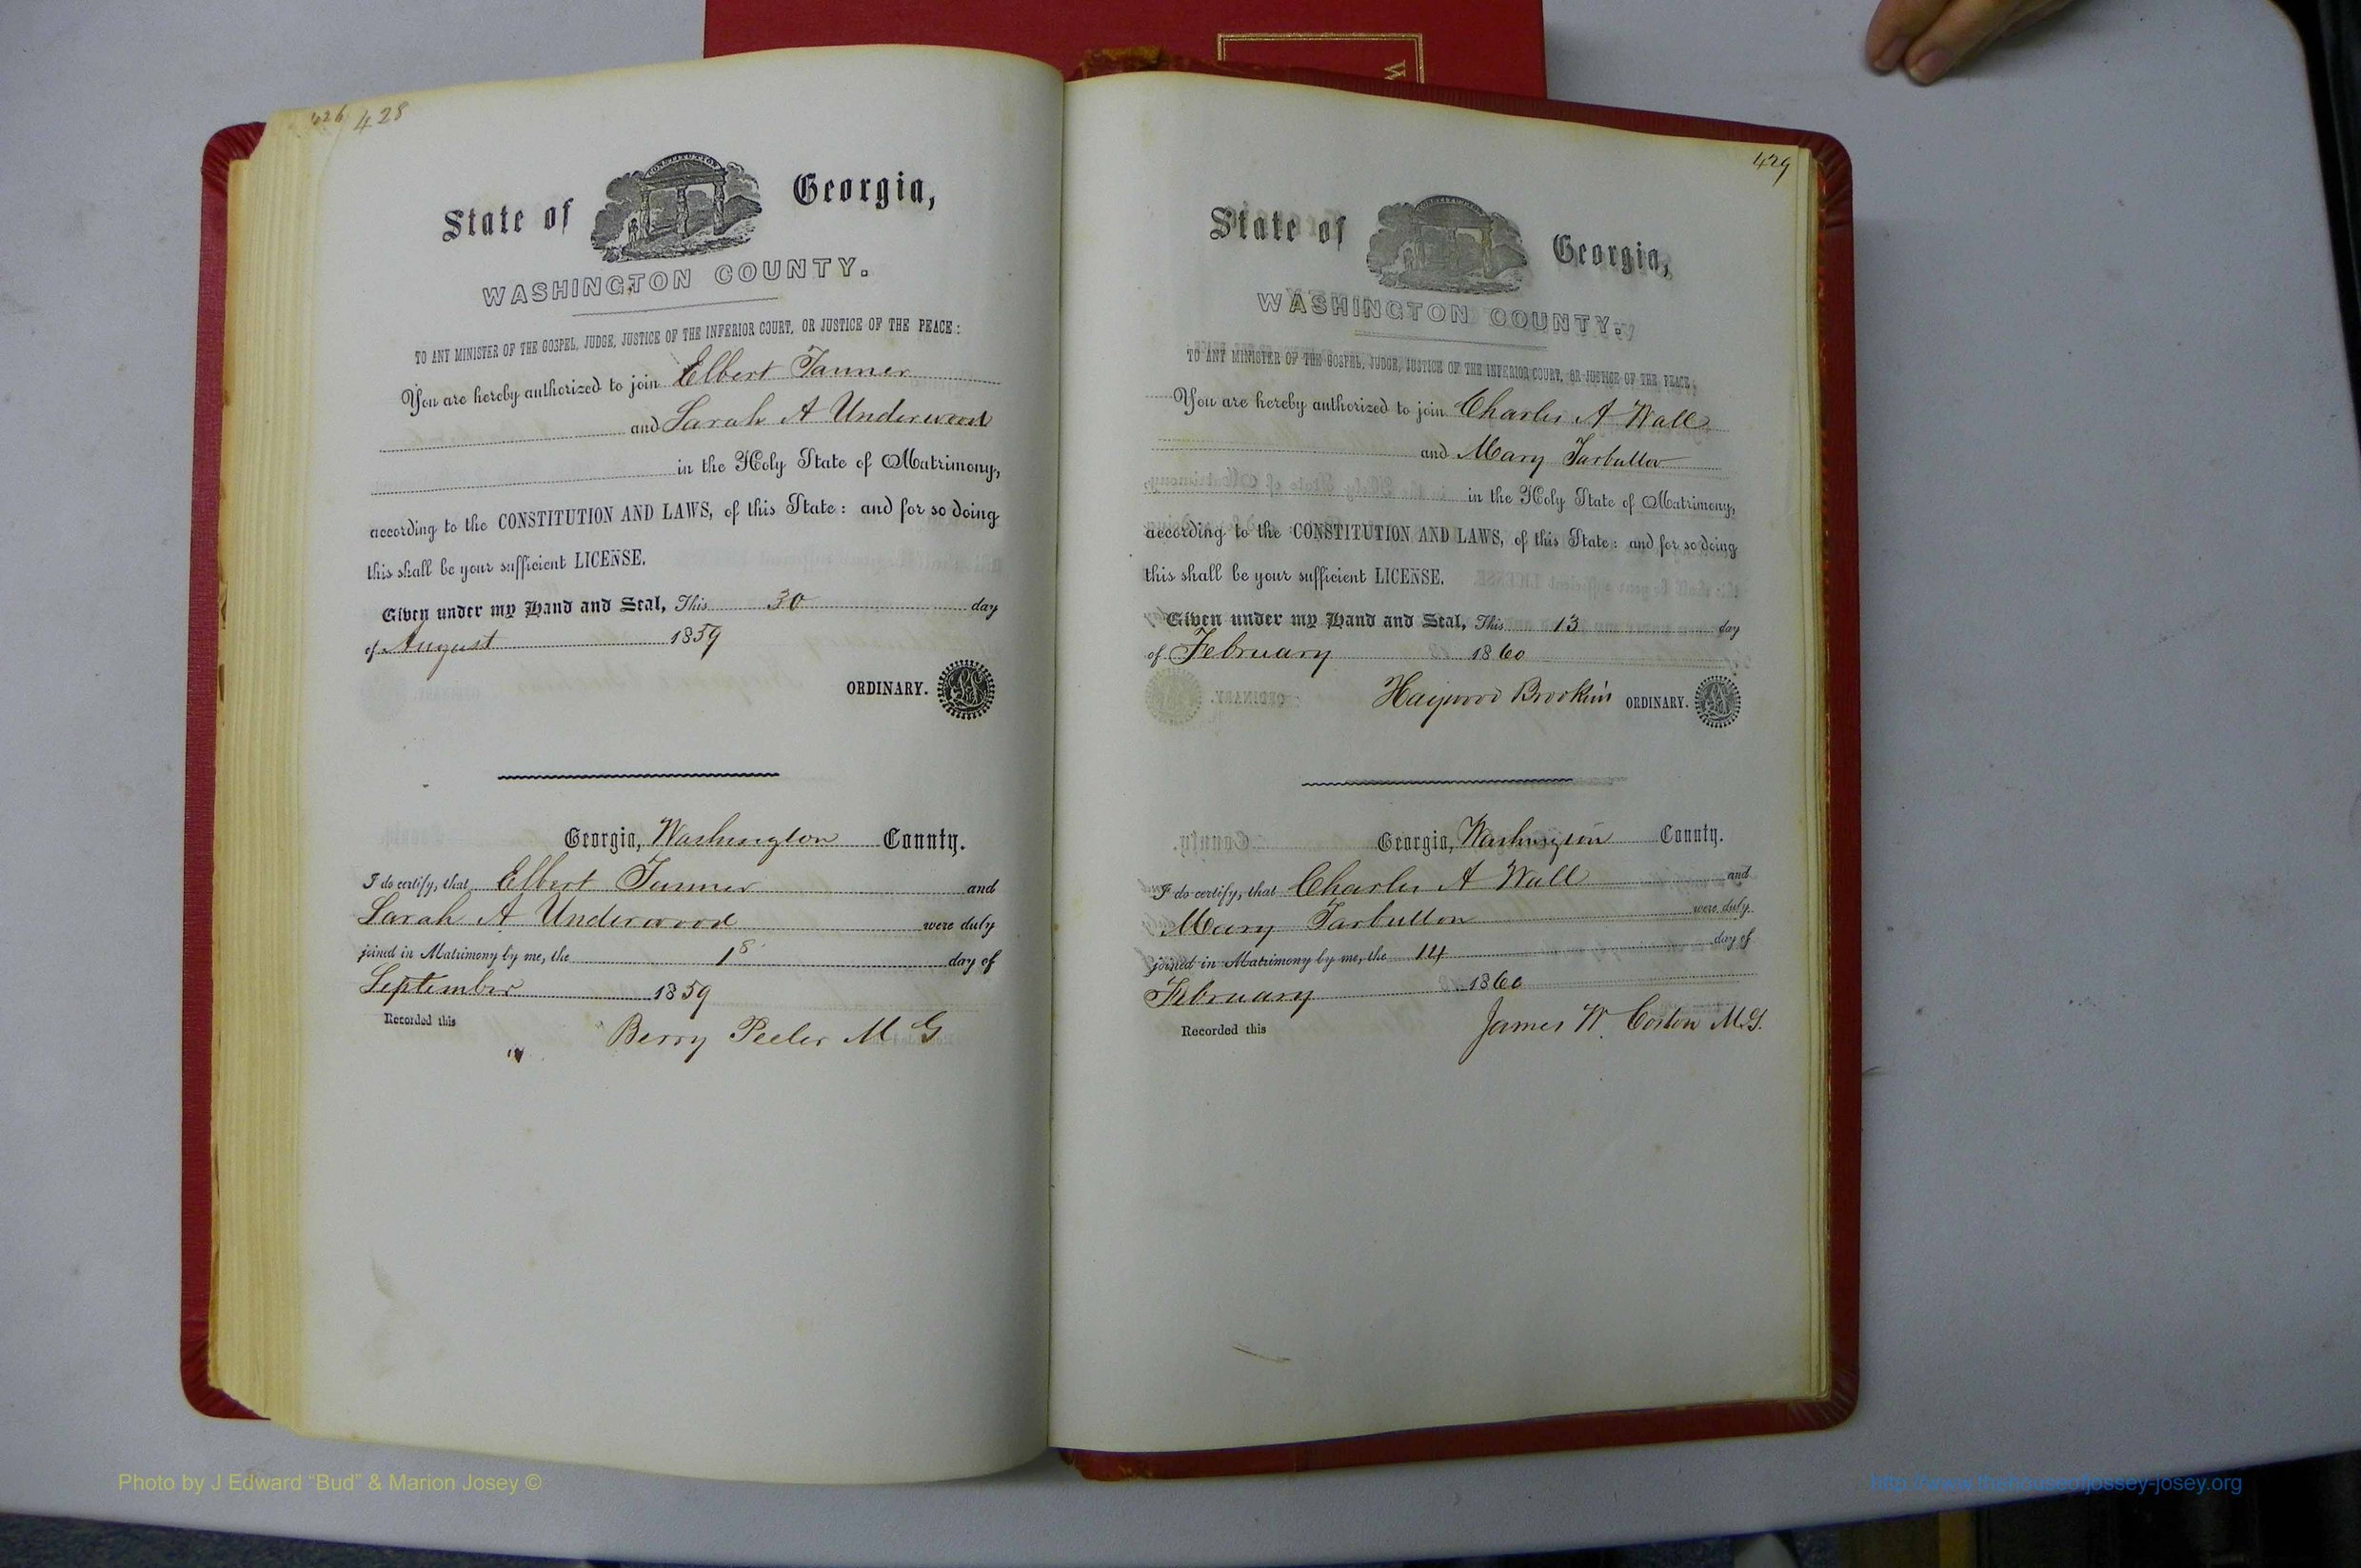 W
426 428
CONSTITUTION
State of Georgia,
WASHINGTON COUNTY.
TO ANY MINISTER OF THE GOSPEL, JUDGE, JUSTICE OF THE INFERIOR COURT, OR JUSTICE OF THE PEACE:
You are hereby authorized to join Elbert Tanner
and Sarah A Underwood
in the Holy State of Matrimony,
according to the CONSTITUTION AND LAWS, of this State: and for so doing
this shall be your sufficient LICENSE.
Given under my Hand and Seal, This 30 day
of August 1859
ORDINARY.
Georgia, Washington County.
I do certify, that Elbert Tanner and
Sarah A Underwood were duly
joined in Matrimony by me, the 1s day of
September 1859
Recorded this
Berry Peeler M G
429
State of Georgia,
WASHINGTON COUNTY.
TO ANY MINISTER OF THE GOSPEL, JUDGE, JUSTICE OF THE INFERIOR COURT, OR JUSTICE OF THE PEACE:
You are hereby authorized to join Charles A Wall
and Mary Tarbutton
in the Holy State of Matrimony,
according to the CONSTITUTION AND LAWS, of this State: and for so doing
this shall be your sufficient LICENSE.
Given under my Hand and Seal, This 13 day
of February 1860
Haywood Brookins ORDINARY.
Georgia, Washington County.
I do certify, that Charles A Wall and
Mary Tarbutton were duly
joined in Matrimony by me, the 14 day of
February 1860
Recorded this
James W. M.G.
Photo by J Edward “Bud” & Marion Josey ©
http://www.thehouseofjossey-josey.org